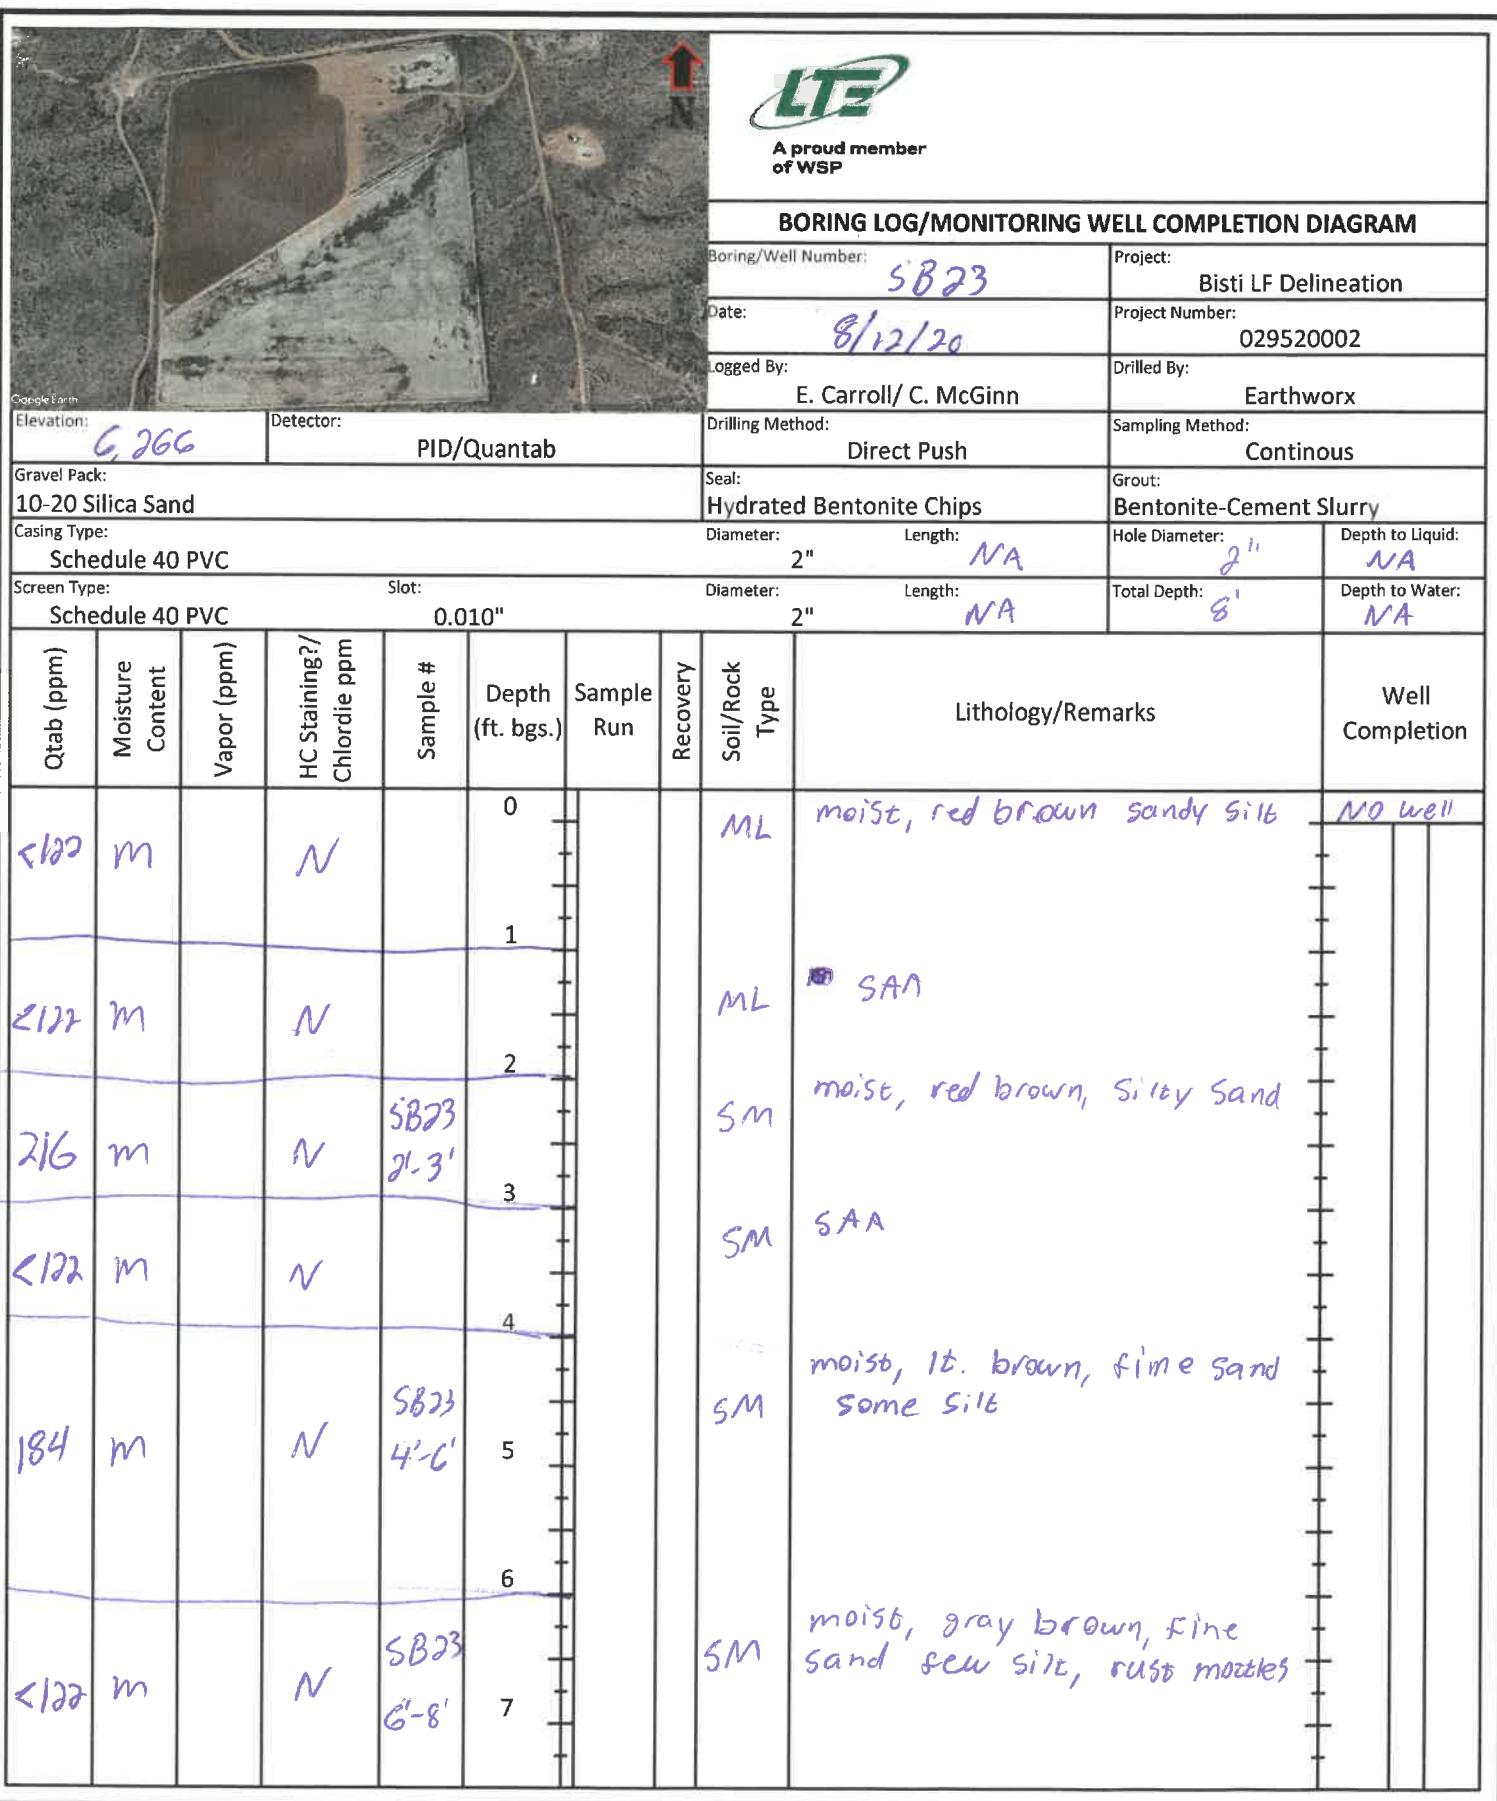 N
Google Earth
LTE
A proud member
of WSP
BORING LOG/MONITORING WELL COMPLETION DIAGRAM
Boring/Well Number: SB23
Project: Bisti LF Delineation
Date: 8/12/20
Project Number: 029520002
Logged By: E. Carroll/ C. McGinn
Drilled By: Earthworx
Elevation: 6,266
Detector: PID/Quantab
Drilling Method: Direct Push
Sampling Method: Continous
Gravel Pack: 10-20 Silica Sand
Seal: Hydrated Bentonite Chips
Grout: Bentonite-Cement Slurry
Casing Type: Schedule 40 PVC
Diameter: 2"
Length: NA
Hole Diameter: 2"
Depth to Liquid: NA
Screen Type: Schedule 40 PVC
Slot: 0.010"
Diameter: 2"
Length: NA
Total Depth: 8'
Depth to Water: NA
Qtab (ppm)
Moisture Content
Vapor (ppm)
HC Staining?/ Chlordie ppm
Sample #
Depth (ft. bgs.)
Sample Run
Recovery
Soil/Rock Type
Lithology/Remarks
Well Completion
0
<122 m N ML moist, red brown sandy silt
No well
1
<122 m N ML SAA
2
216 m N SB23 2'-3' SM moist, red brown, silty sand
3
<122 m N SM SAA
4
184 m N SB23 4'-6' 5 SM moist, lt. brown, fine sand
some silt
6
<122 m N SB23 6'-8' 7 SM moist, gray brown, fine
sand few silt, rust mottles